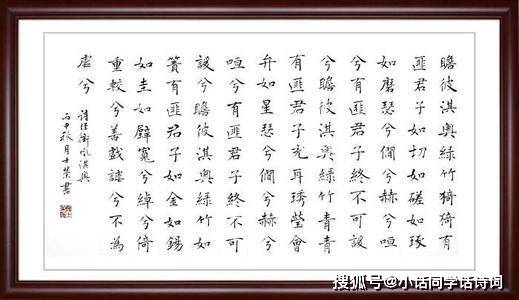 瞻彼淇奧綠竹猗猗有
匪君子如切如磋如琢
如磨瑟兮僩兮赫兮咺
兮有匪君子終不可諼
兮瞻彼淇奧綠竹青青
有匪君子充耳琇瑩會
弁如星瑟兮僩兮赫兮
咺兮有匪君子終不可
諼兮瞻彼淇奧綠竹如
簀有匪君子如金如錫
如圭如璧寬兮綽兮倚
重較兮善戲謔兮不為
虐兮
詩經衛風淇奧
丙申秋月士榮書
搜狐号@小话同学话诗词